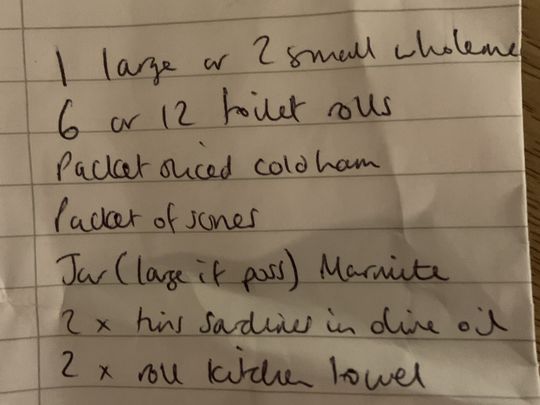 1 large or 2 small wholeme
6 or 12 toilet rolls
Packet sliced cold ham
Packet of scones
Jar (large if poss) Marmite
2 x tins sardines in olive oil
2 x roll kitchen towel